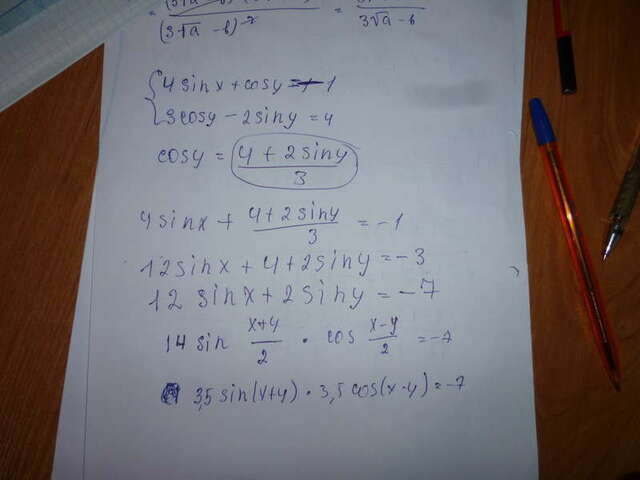 (3√a - b)⁻²
=
3√a - b
{ 4 sinx + cosy = -1
3cosy - 2siny = 4
cosy = (4 + 2siny)/3
4 sinx + (4+2siny)/3 = -1
12sinx + 4 + 2siny = -3
12 sinx + 2siny = -7
14 sin (x+y)/2 · cos (x-y)/2 = -7
3,5 sin(x+y) · 3,5 cos(x-y) = -7